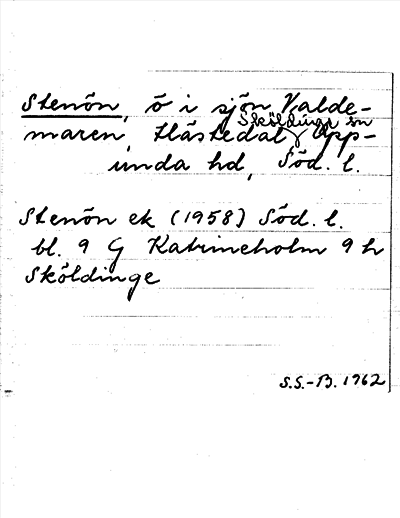 Stenön, ö i sjön Valde-
maren, Hästedal, Sköldinge sn Opp-
unda hd, Söd. l.
Stenön ek (1958) Söd. l.
bl. 9 G Katrineholm 9 h
Sköldinge
S.S.-B. 1962